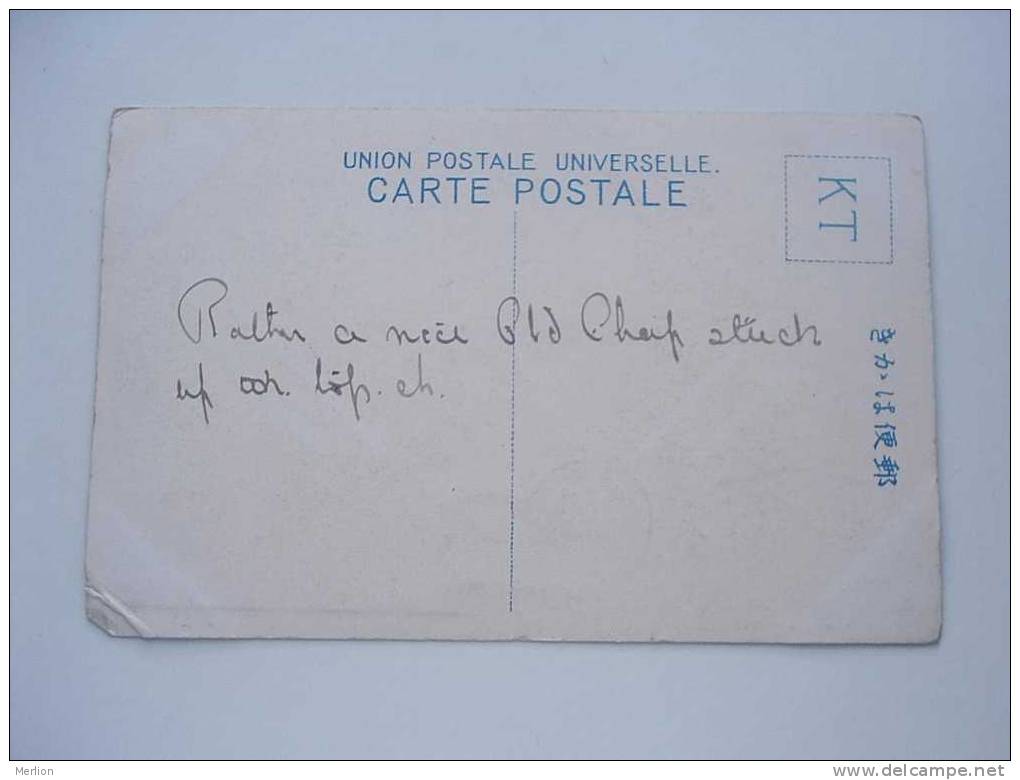 UNION POSTALE UNIVERSELLE.
CARTE POSTALE
KT
Rather a nice Old Chap stuck
up on. top. eh.
きかは便郵
Merlion
www.delcampe.net